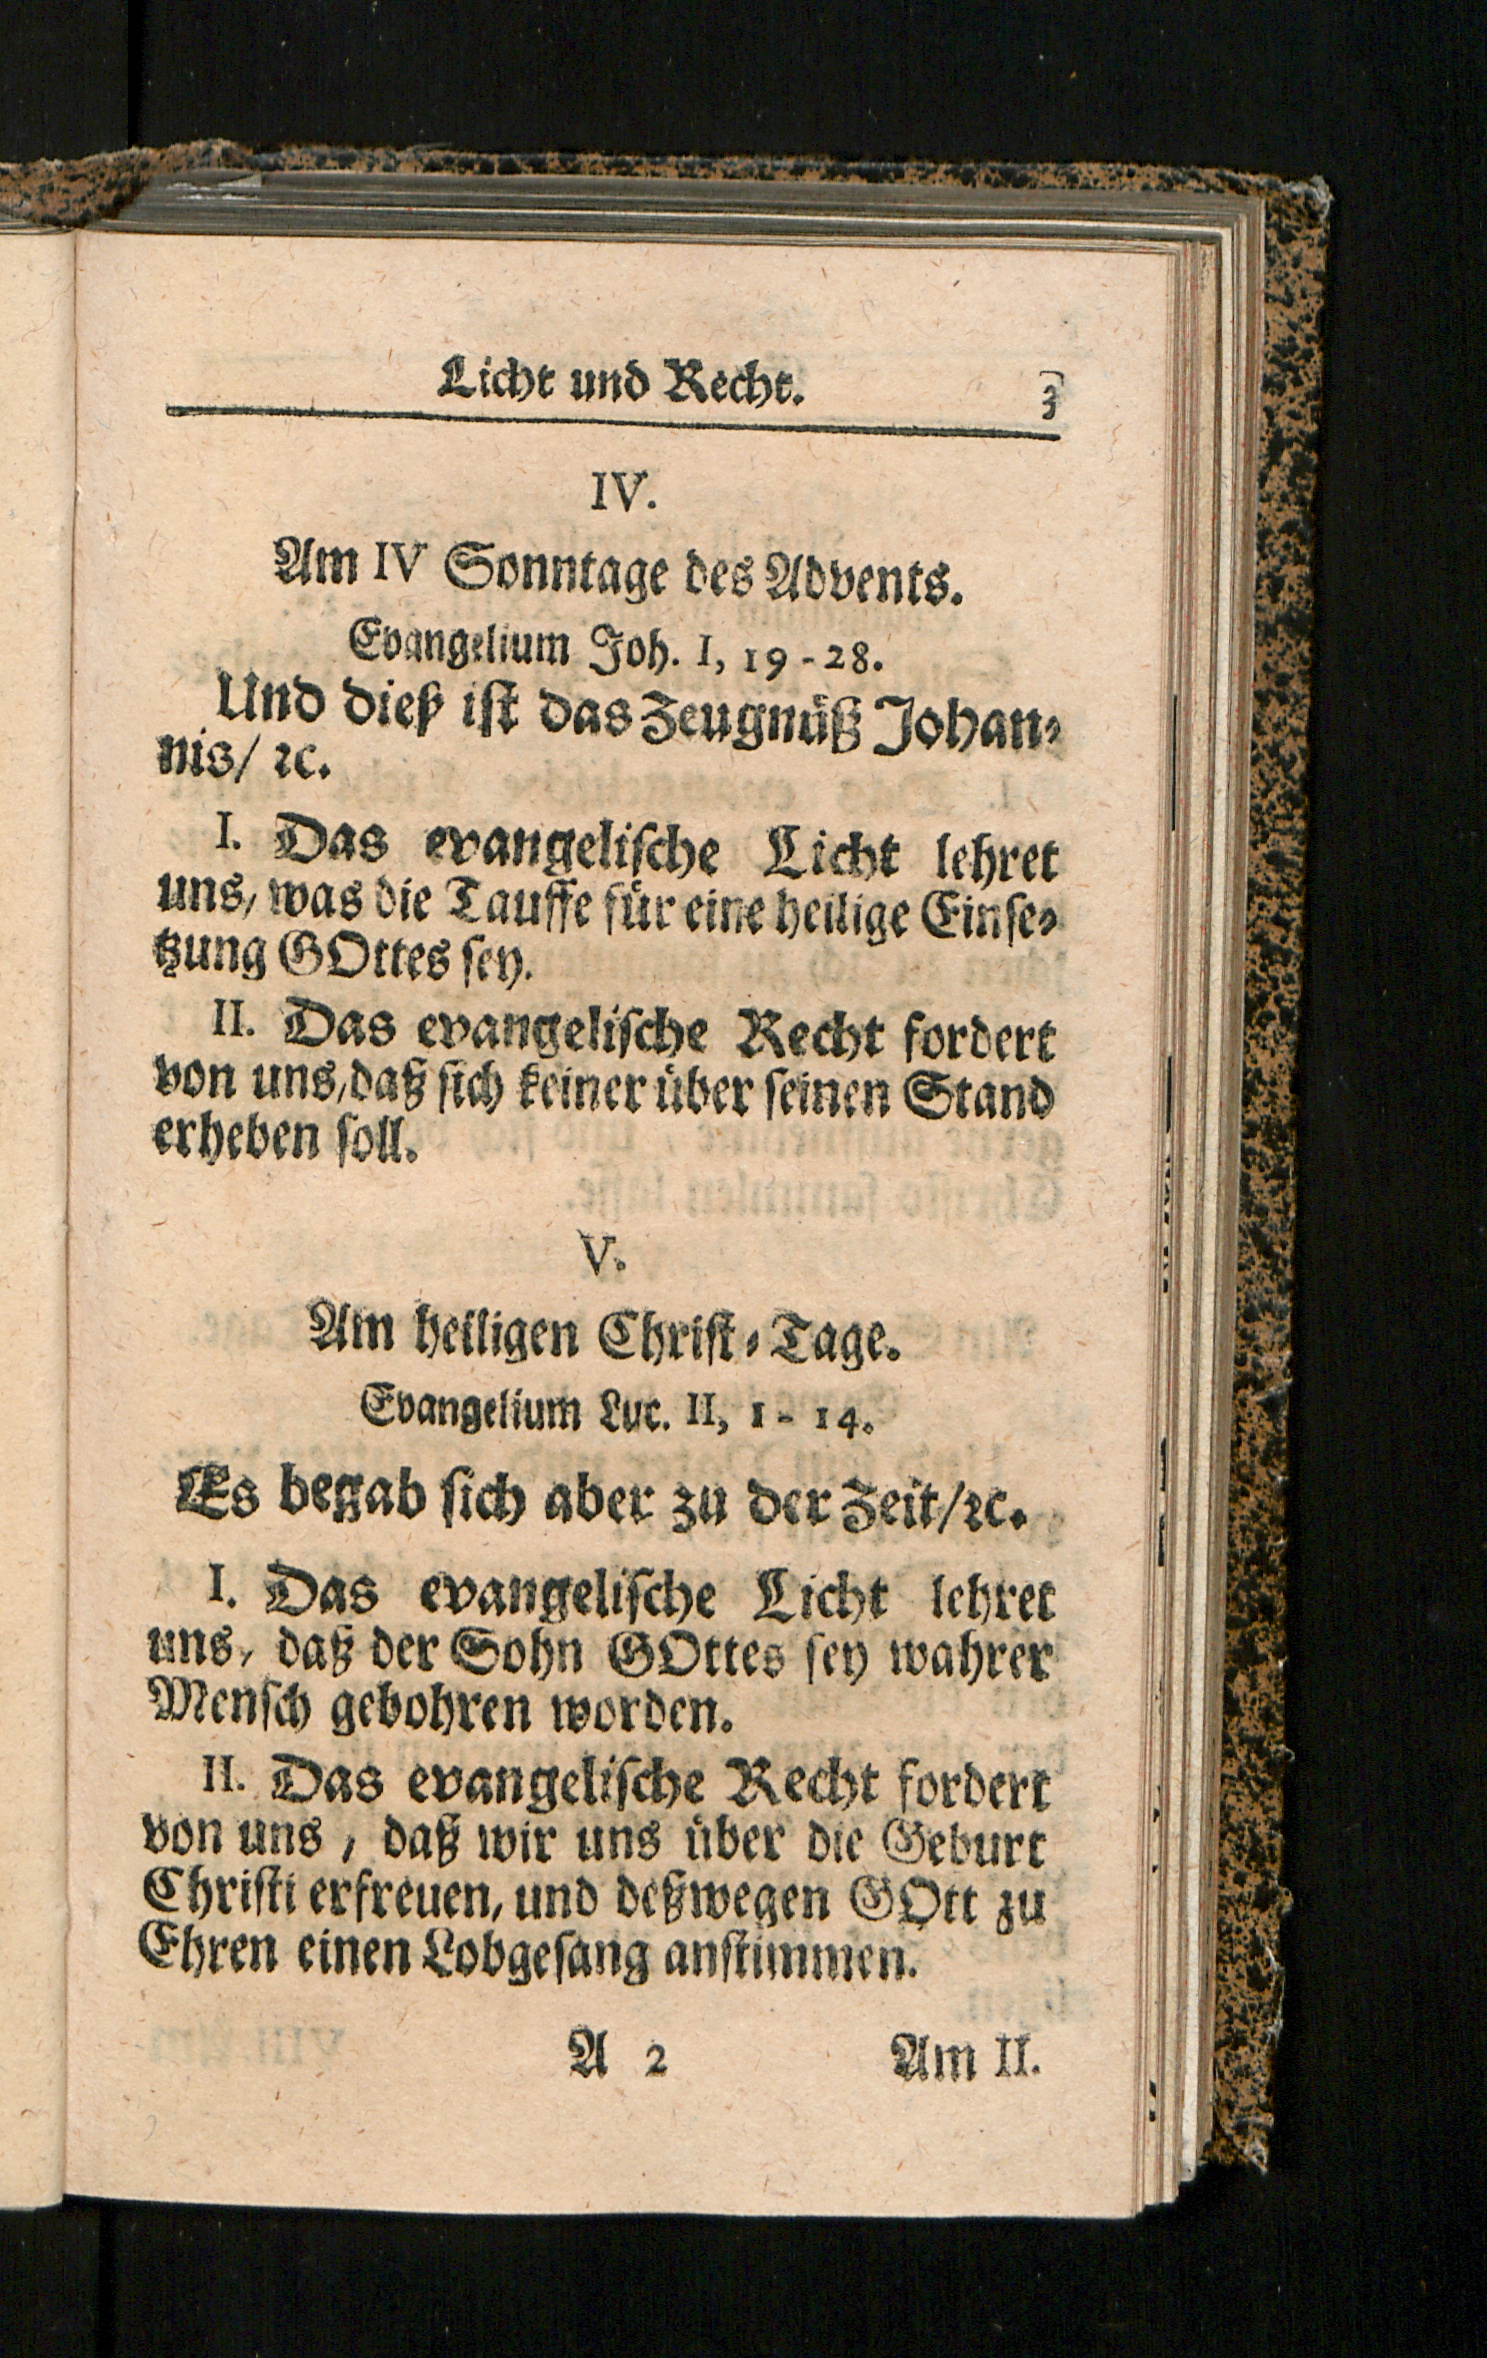 Licht und Recht. 3
IV.
Am IV Sonntage des Advents.
Evangelium Joh. I, 19-28.
Und dieß ist das Zeugnüß Johan-
nis/ ꝛc.
I. Das evangelische Licht lehret
uns, was die Tauffe für eine heilige Einse-
tzung GOttes sey.
II. Das evangelische Recht fordert
von uns, daß sich keiner über seinen Stand
erheben soll.
V.
Am heiligen Christ-Tage.
Evangelium Luc. II, 1-14.
Es begab sich aber zu der Zeit/ꝛc.
I. Das evangelische Licht lehret
uns, daß der Sohn GOttes sey wahrer
Mensch gebohren worden.
II. Das evangelische Recht fordert
von uns, daß wir uns über die Geburt
Christi erfreuen, und deßwegen GOtt zu
Ehren einen Lobgesang anstimmen.
A 2 Am II.